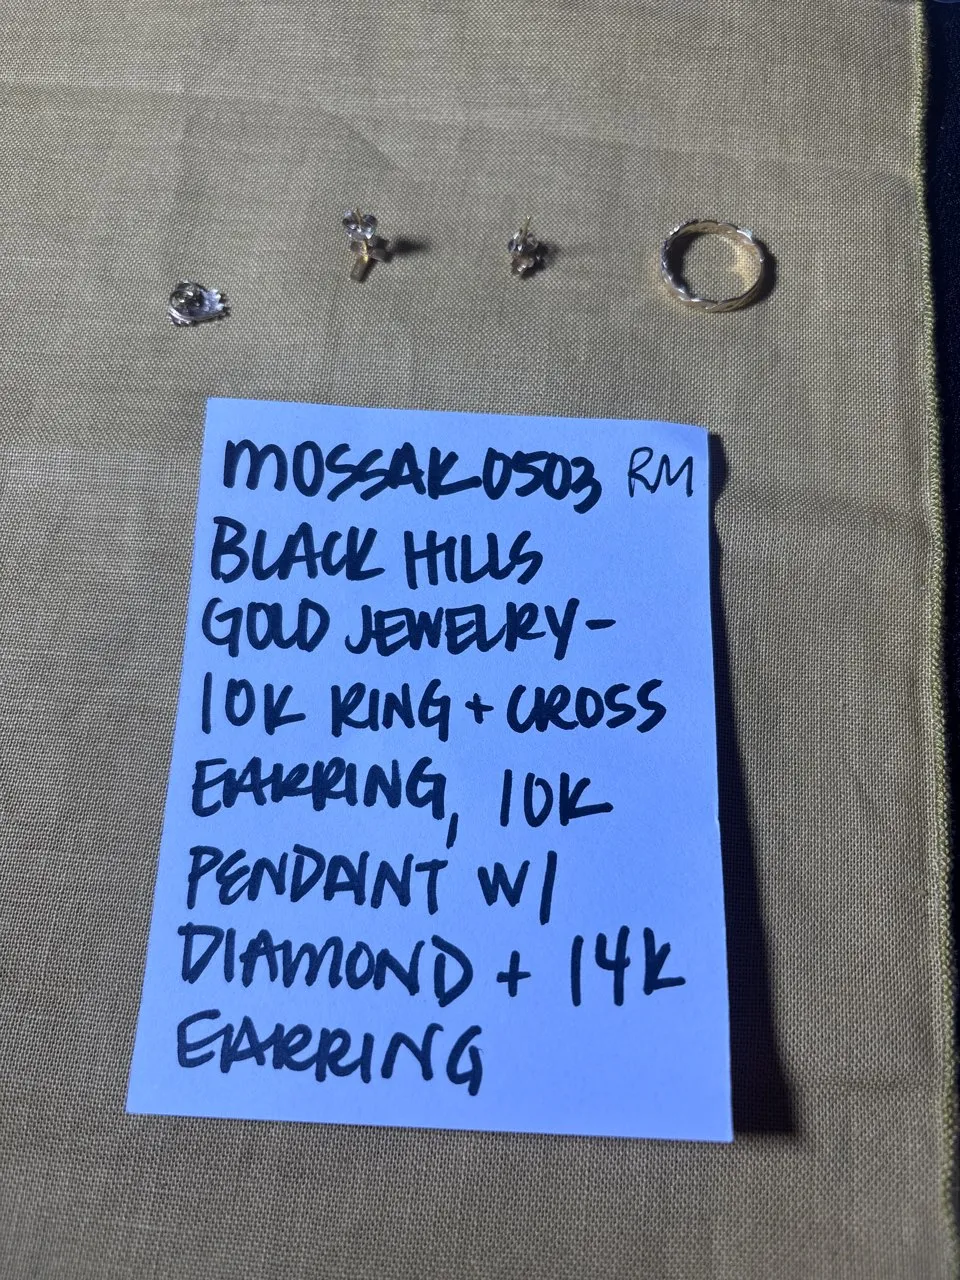 MOSSAK0503 RM
BLACK HILLS
GOLD JEWELRY-
10K RING + CROSS
EARRING, 10K
PENDANT W/
DIAMOND + 14K
EARRING